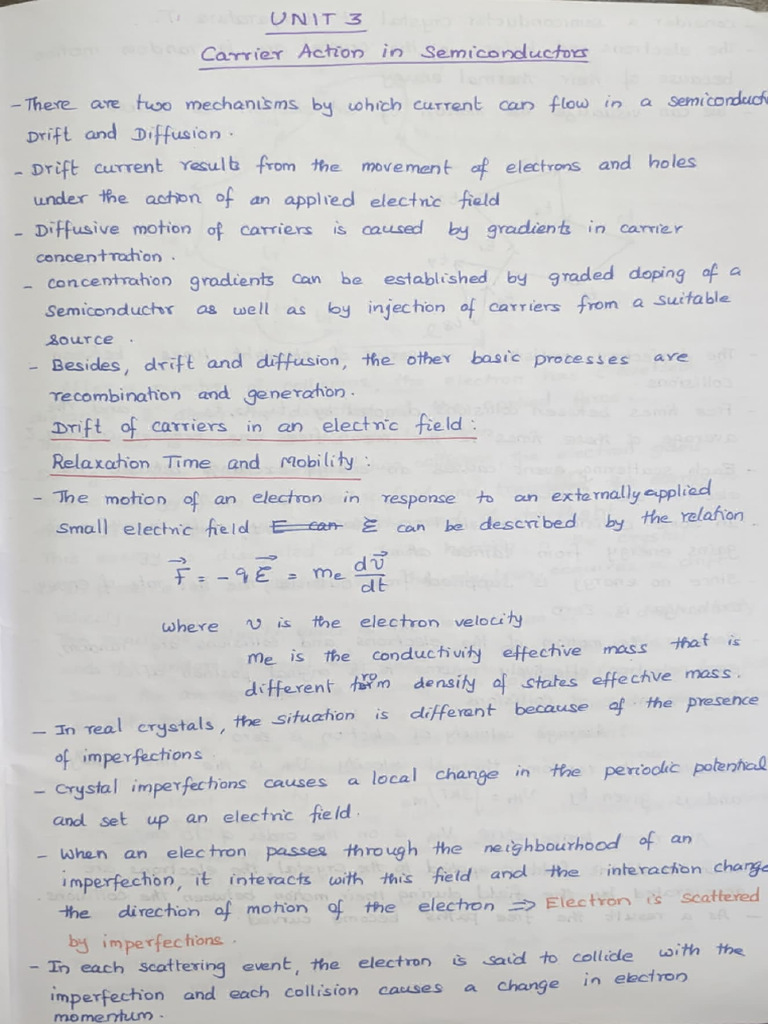 UNIT 3
Carrier Action in Semiconductors
- There are two mechanisms by which current can flow in a semiconduct
Drift and Diffusion.
- Drift current results from the movement of electrons and holes
under the action of an applied electric field
- Diffusive motion of carriers is caused by gradients in carrier
concentration.
- concentration gradients can be established by graded doping of a
semiconductor as well as by injection of carriers from a suitable
source.
- Besides, drift and diffusion, the other basic processes are
recombination and generation.
Drift of carriers in an electric field:
Relaxation Time and Mobility:
- The motion of an electron in response to an externally applied
small electric field ~~E can~~ Ɛ can be described by the relation
F⃗ = -qƐ⃗ = me dv⃗/dt
where v is the electron velocity
me is the conductivity effective mass that is
different from density of states effective mass.
- In real crystals, the situation is different because of the presence
of imperfections.
- Crystal imperfections causes a local change in the periodic potential
and set up an electric field.
- When an electron passes through the neighbourhood of an
imperfection, it interacts with this field and the interaction change
the direction of motion of the electron ⇒ Electron is scattered
by imperfections.
- In each scattering event, the electron is said to collide with the
imperfection and each collision causes a change in electron
momentum.